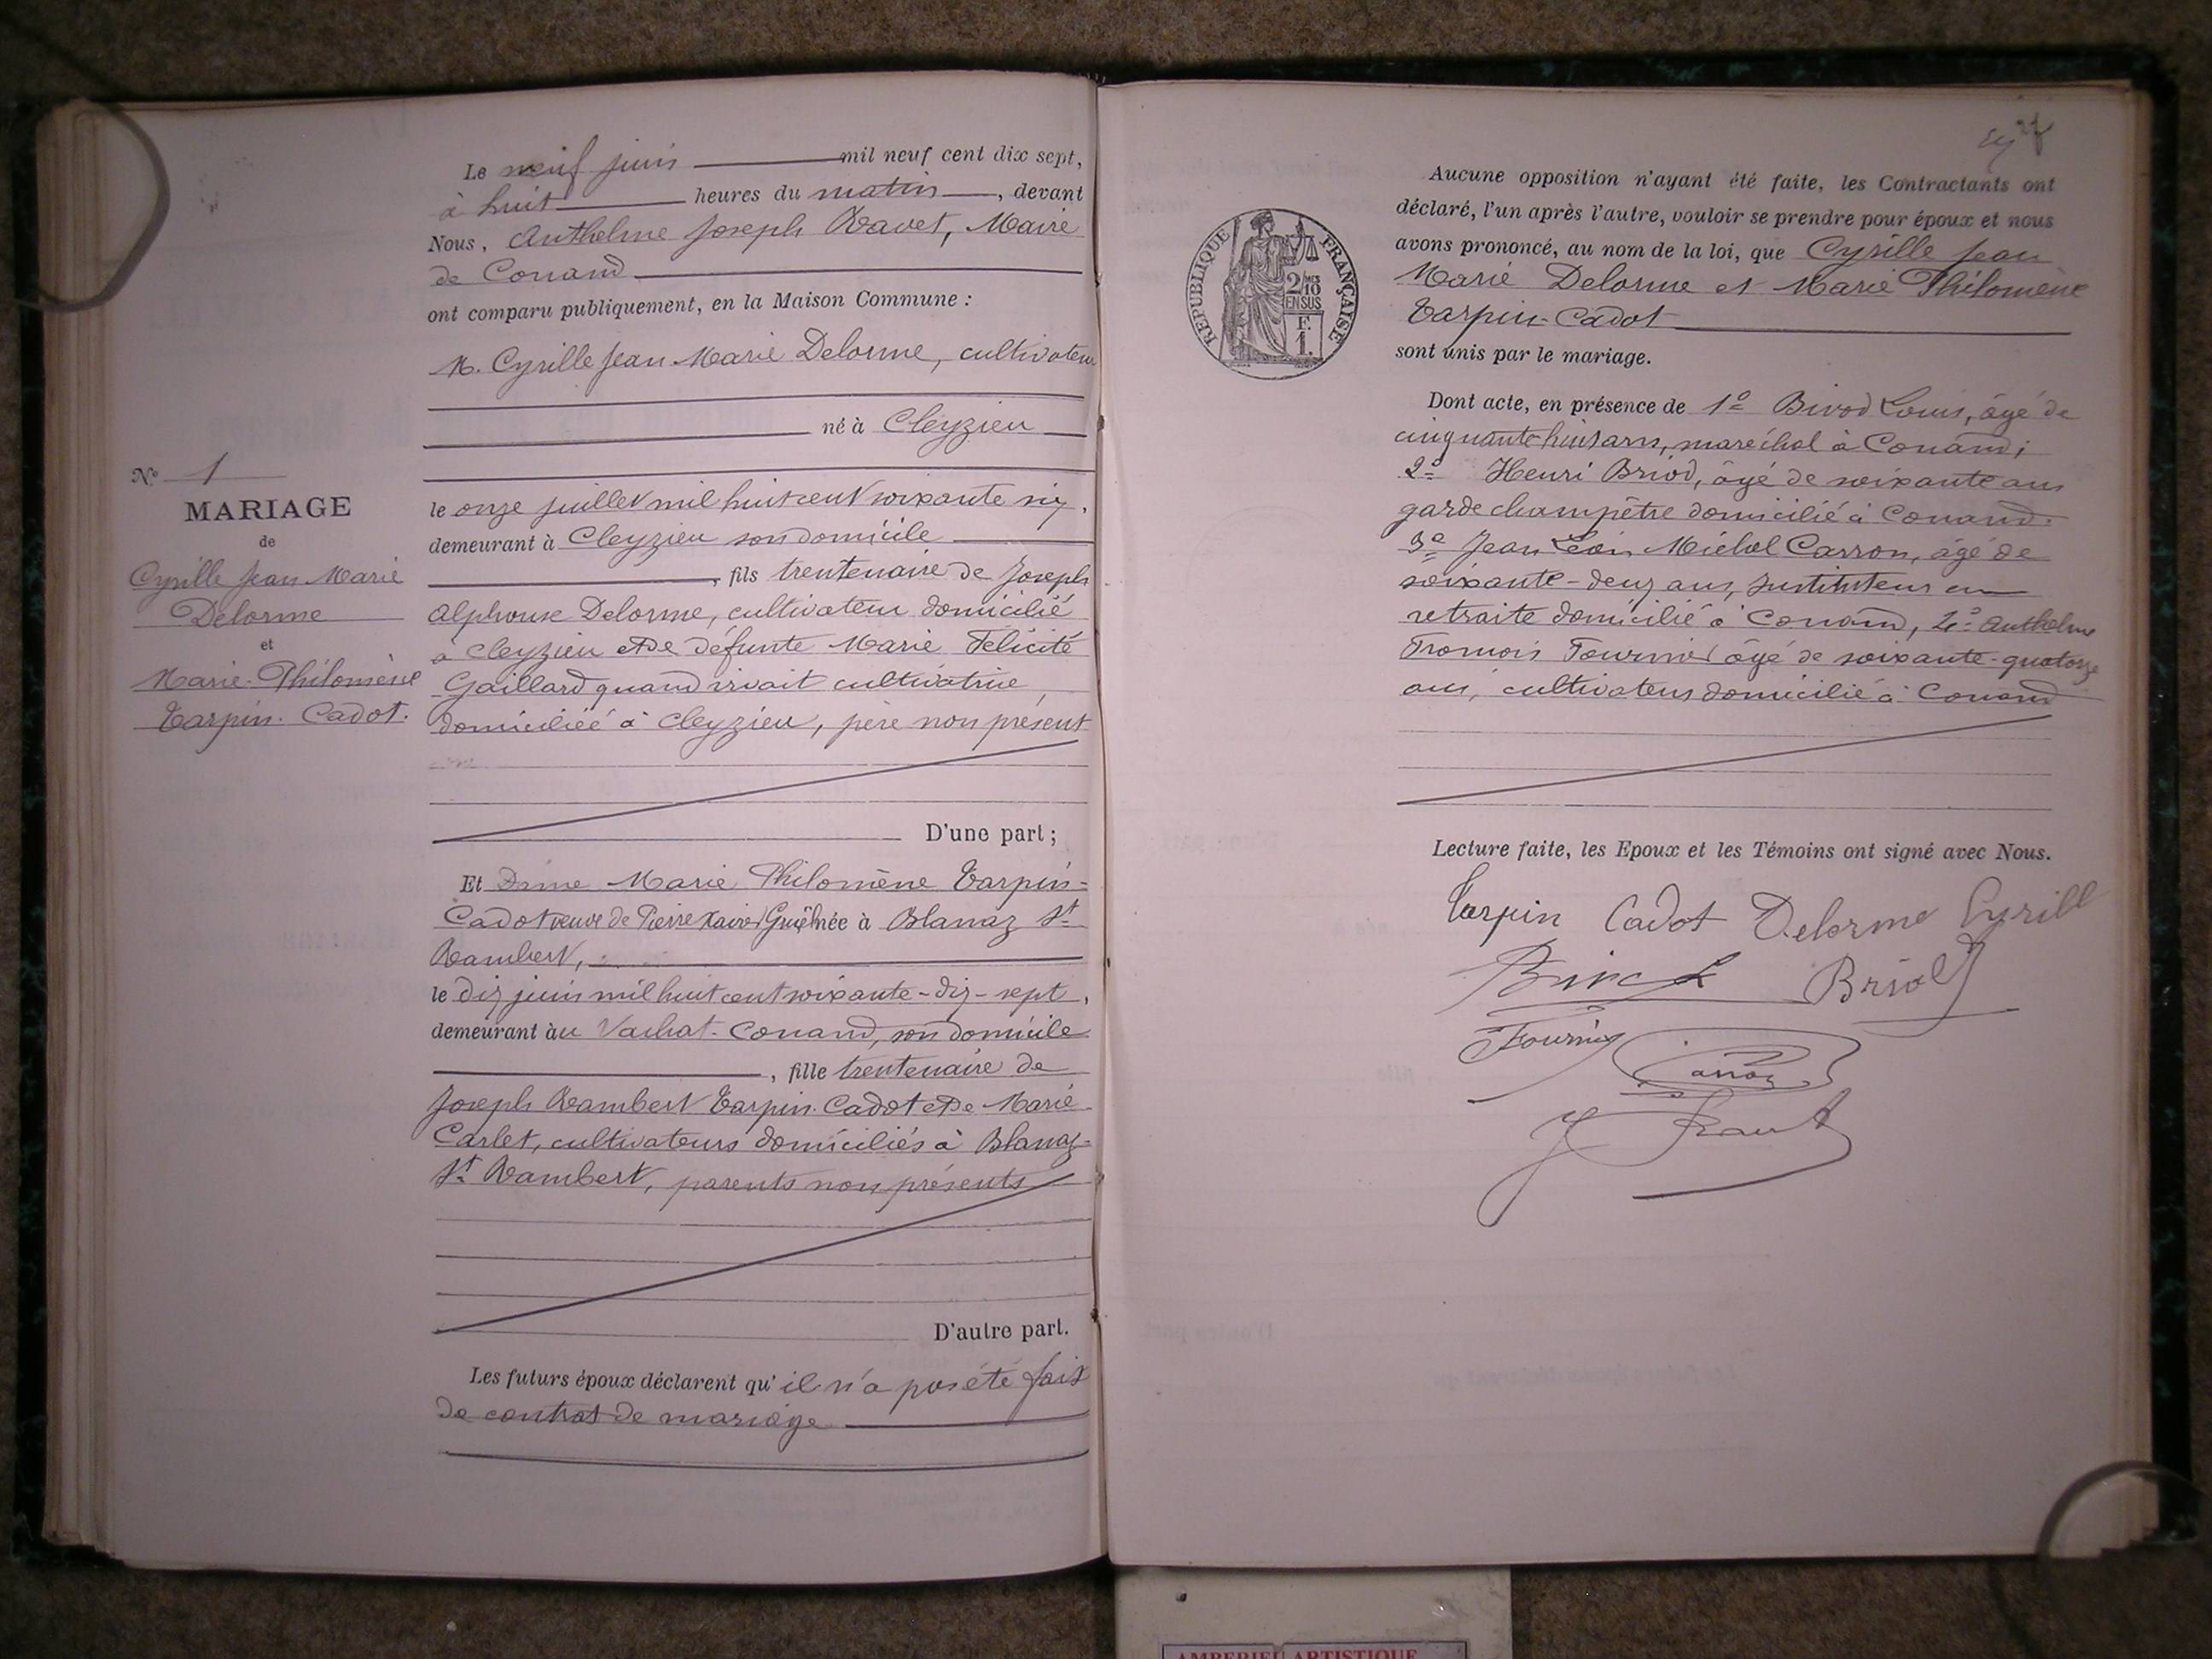 Le neuf juin mil neuf cent dix sept,
à huit heures du matin, devant
Nous, Anthelme Joseph Ravet, Maire
de Conand
ont comparu publiquement, en la Maison Commune :
M. Cyrille Jean Marie Delorme, cultivateur
né à Cleyzieu
le onze juillet mil huit cent soixante six,
demeurant à Cleyzieu son domicile
, fils trentenaire de Joseph
Alphonse Delorme, cultivateur domicilié
à Cleyzieu et de défunte Marie Félicité
Gaillard quand vivait cultivatrice,
domiciliée à Cleyzieu, père non présent
D'une part ;
Et Dame Marie Philomène Tarpin-
Cadot veuve de Pierre née à Blanaz St
Rambert,
le dix juin mil huit cent soixante-dix-sept,
demeurant au Vachat-Conand, son domicile
, fille trentenaire de
Joseph Rambert Tarpin-Cadot et de Marie
Carlet, cultivateurs domiciliés à Blanaz-
St Rambert, parents non présents
D'autre part.
Les futurs époux déclarent qu'il n'a pas été fait
de contrat de mariage
No 1
MARIAGE
de
Cyrille Jean Marie
Delorme
et
Marie-Philomène
Tarpin-Cadot.
27
RÉPUBLIQUE FRANÇAISE
2/10
EN SUS
F.
1.
Aucune opposition n'ayant été faite, les Contractants ont
déclaré, l'un après l'autre, vouloir se prendre pour époux et nous
avons prononcé, au nom de la loi, que Cyrille Jean
Marie Delorme et Marie Philomène
Tarpin-Cadot
sont unis par le mariage.
Dont acte, en présence de 1° Louis, âgé de
cinquante-huit ans, maréchal à Conand ;
2° Henri Briod, âgé de soixante ans
garde champêtre domicilié à Conand.
3° Jean Léon Michel Carron, âgé de
soixante-deux ans, instituteur en
retraite domicilié à Conand, 4° Anthelme
François Fournier âgé de soixante-quatorze
ans, cultivateur domicilié à Conand
Lecture faite, les Epoux et les Témoins ont signé avec Nous.
Tarpin Cadot Delorme Cyrill
Briod
Fournier
Carron
J Ravet
AMBERIEU ARTISTIQUE